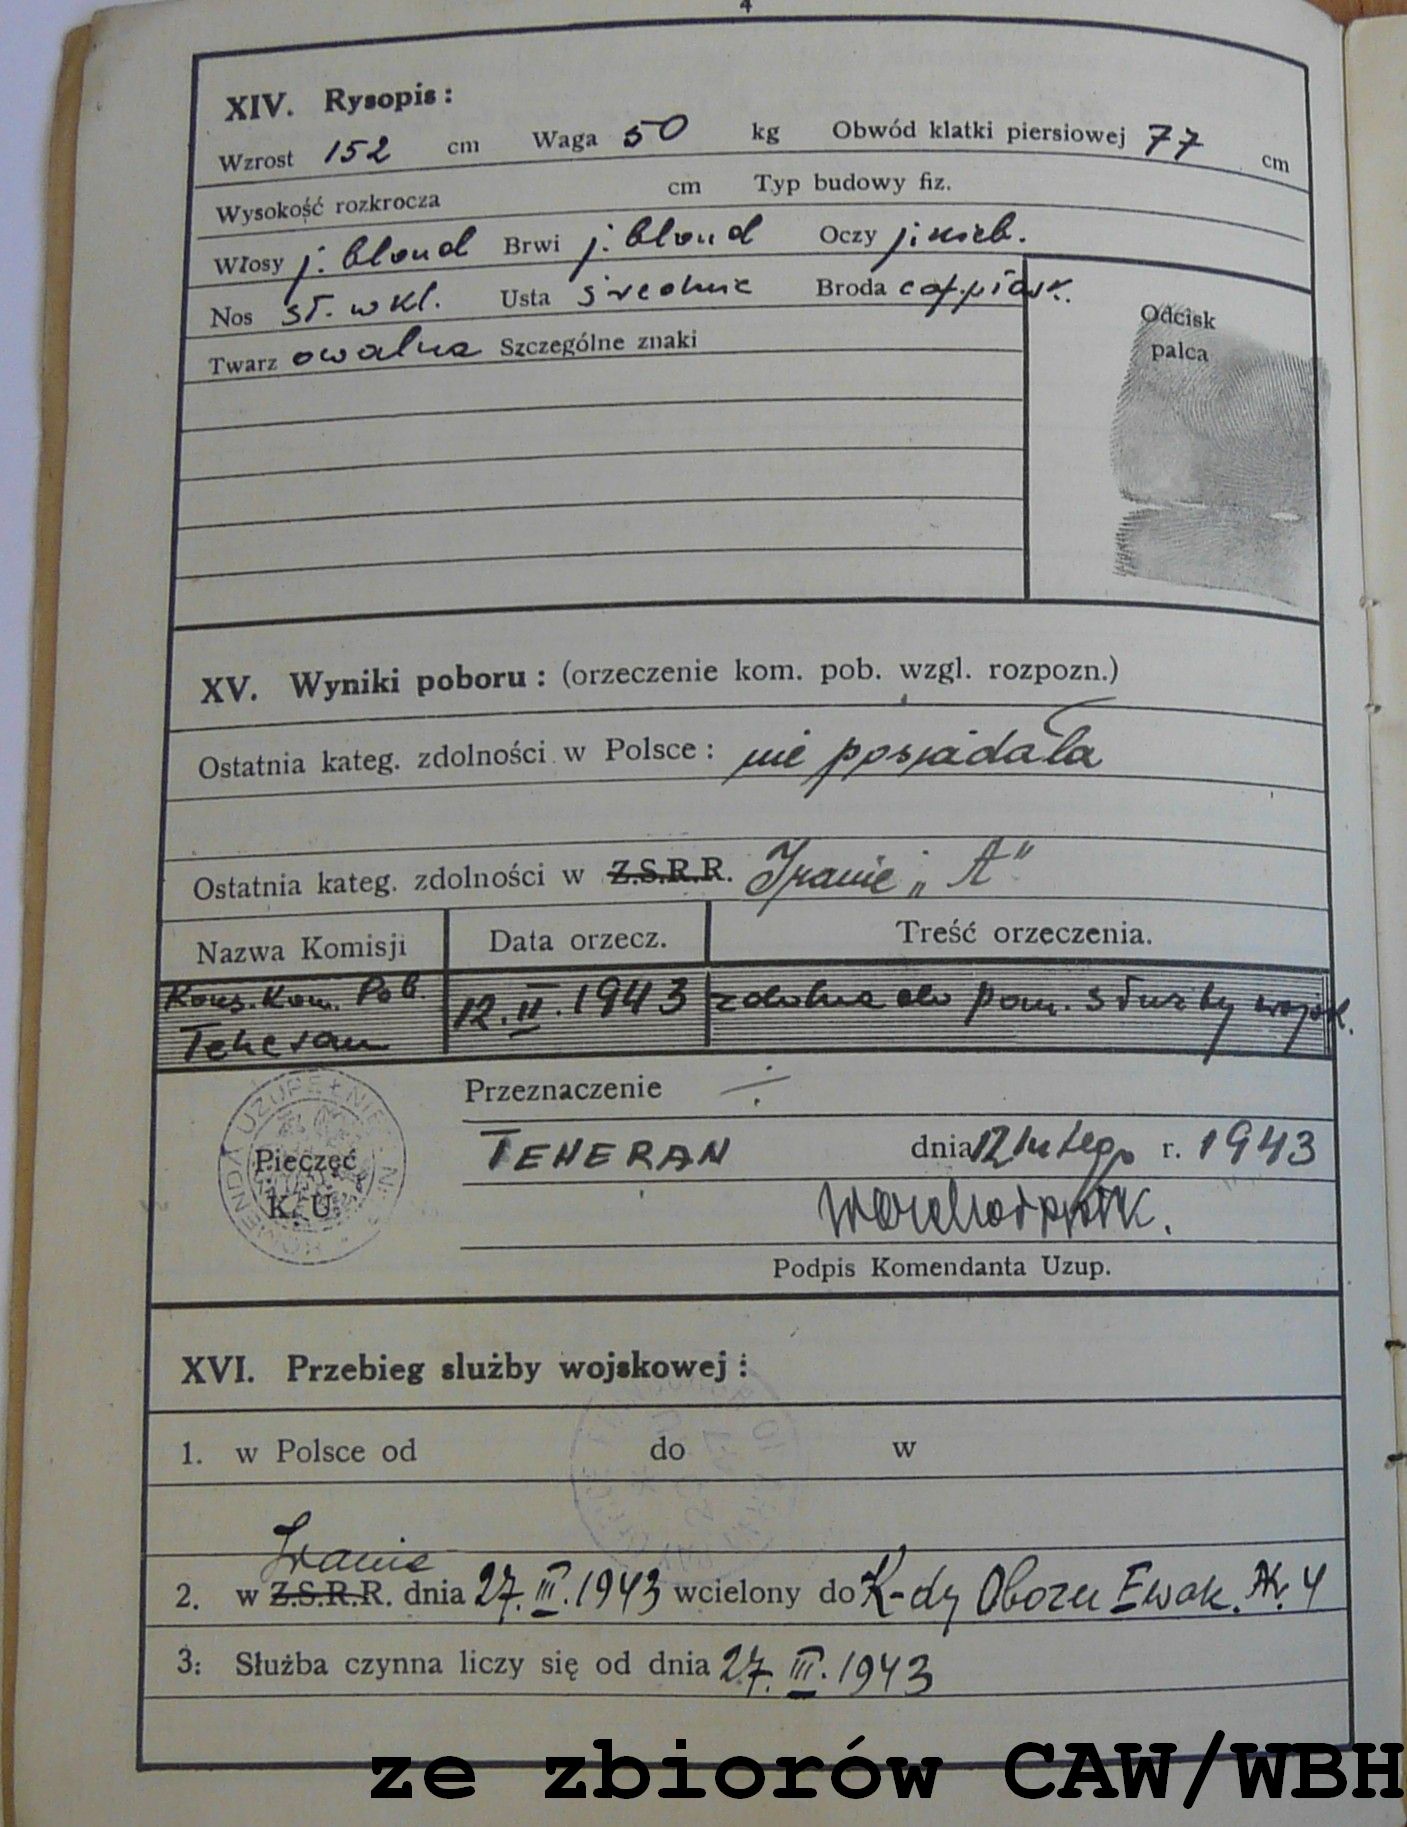 4
XIV. Rysopis:
Wzrost 152 cm Waga 50 kg Obwód klatki piersiowej 77 cm
Wysokość rozkrocza cm Typ budowy fiz.
Włosy j. blond Brwi j. blond Oczy j. nieb.
Nos sł. wkl. Usta średnie Broda
Twarz owalna Szczególne znaki
Odcisk
palca
XV. Wyniki poboru: (orzeczenie kom. pob. wzgl. rozpozn.)
Ostatnia kateg. zdolności w Polsce: nie posiadała
Ostatnia kateg. zdolności w Z.S.R.R. Iranie „A"
Nazwa Komisji Data orzecz. Treść orzeczenia.
Kom. Pob. 12.II.1943 zdolna do pom. służby wojsk.
Teheran
Przeznaczenie ÷
Pieczęć
K. U.
KOMENDA UZUPEŁNIEŃ
TEHERAN dnia 12 lutego r. 1943
Podpis Komendanta Uzup.
XVI. Przebieg służby wojskowej:
1. w Polsce od do w
Iranie
2. w Z.S.R.R. dnia 27.III.1943 wcielony do K-dy Obozu Ewak. Nr. 4
3: Służba czynna liczy się od dnia 27.III.1943
ze zbiorów CAW/WBH